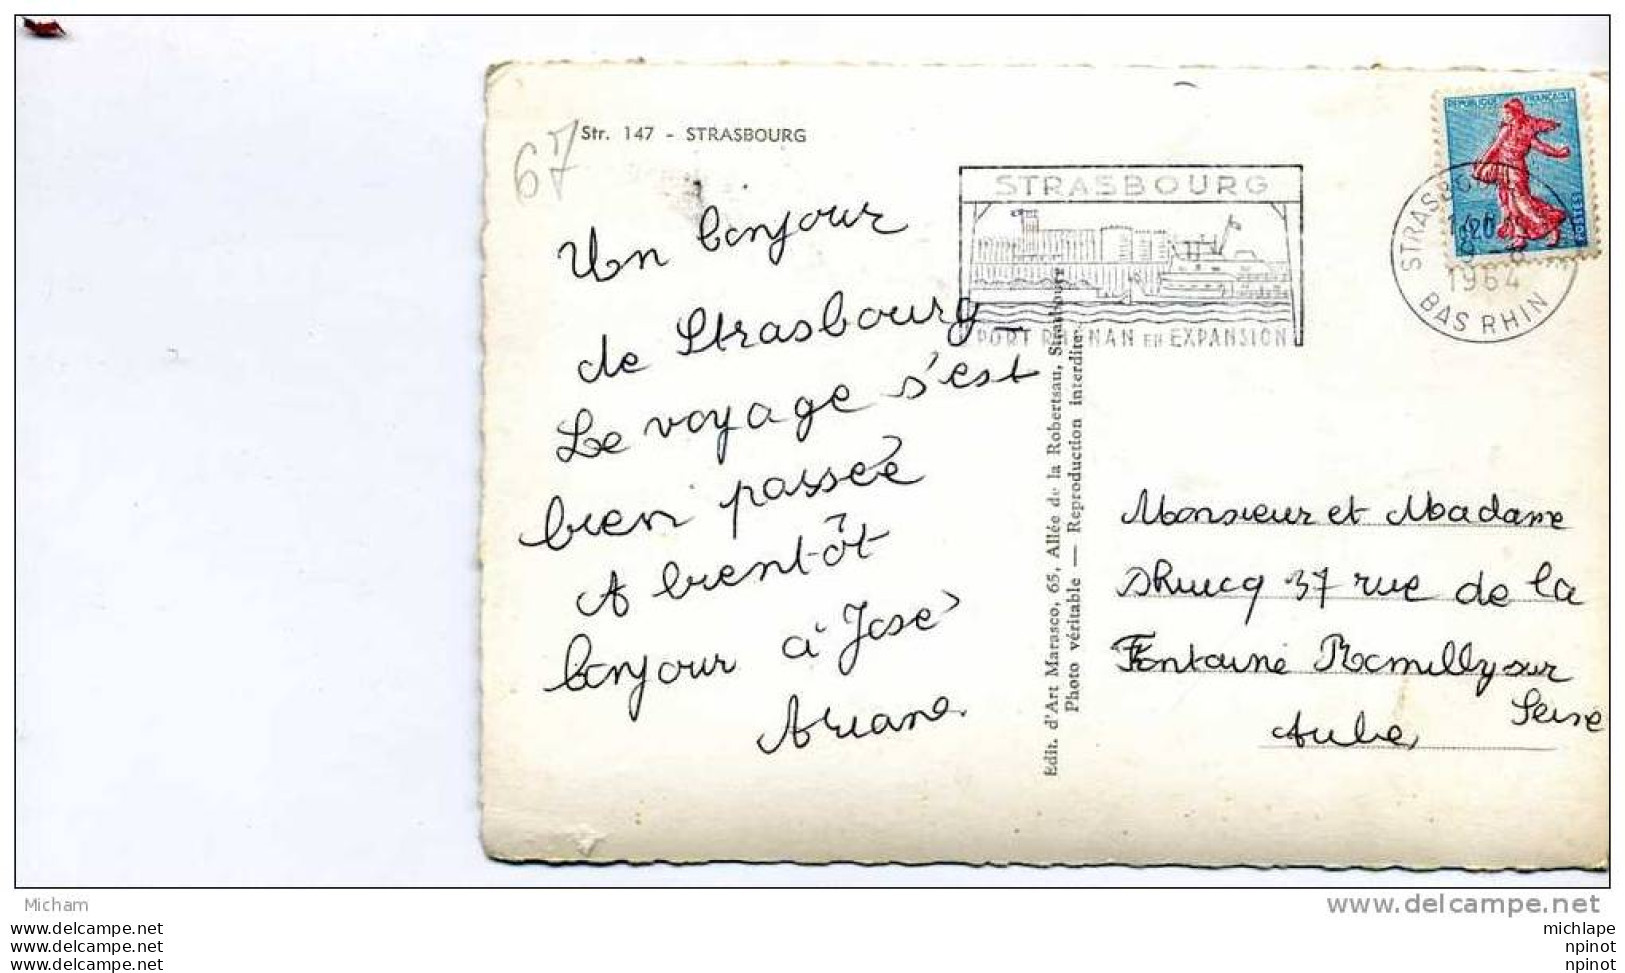 67
Str. 147 - STRASBOURG
Un bonjour
de Strasbourg
Le voyage s'est
bien passée
A bientôt
bonjour à José
Ariane
Edit. d'Art Marasco, 65, Allée de la Robertsau, Strasbourg
Photo véritable — Reproduction interdite
STRASBOURG
PORT RHENAN EN EXPANSION
REPUBLIQUE FRANÇAISE
POSTES
STRASBOURG
1964
BAS RHIN
Monsieur et Madame
37 rue de la
Fontaine Romilly sur
Seine
Aube
Micham
www.delcampe.net
www.delcampe.net
www.delcampe.net
www.delcampe.net
michlape
npinot
npinot